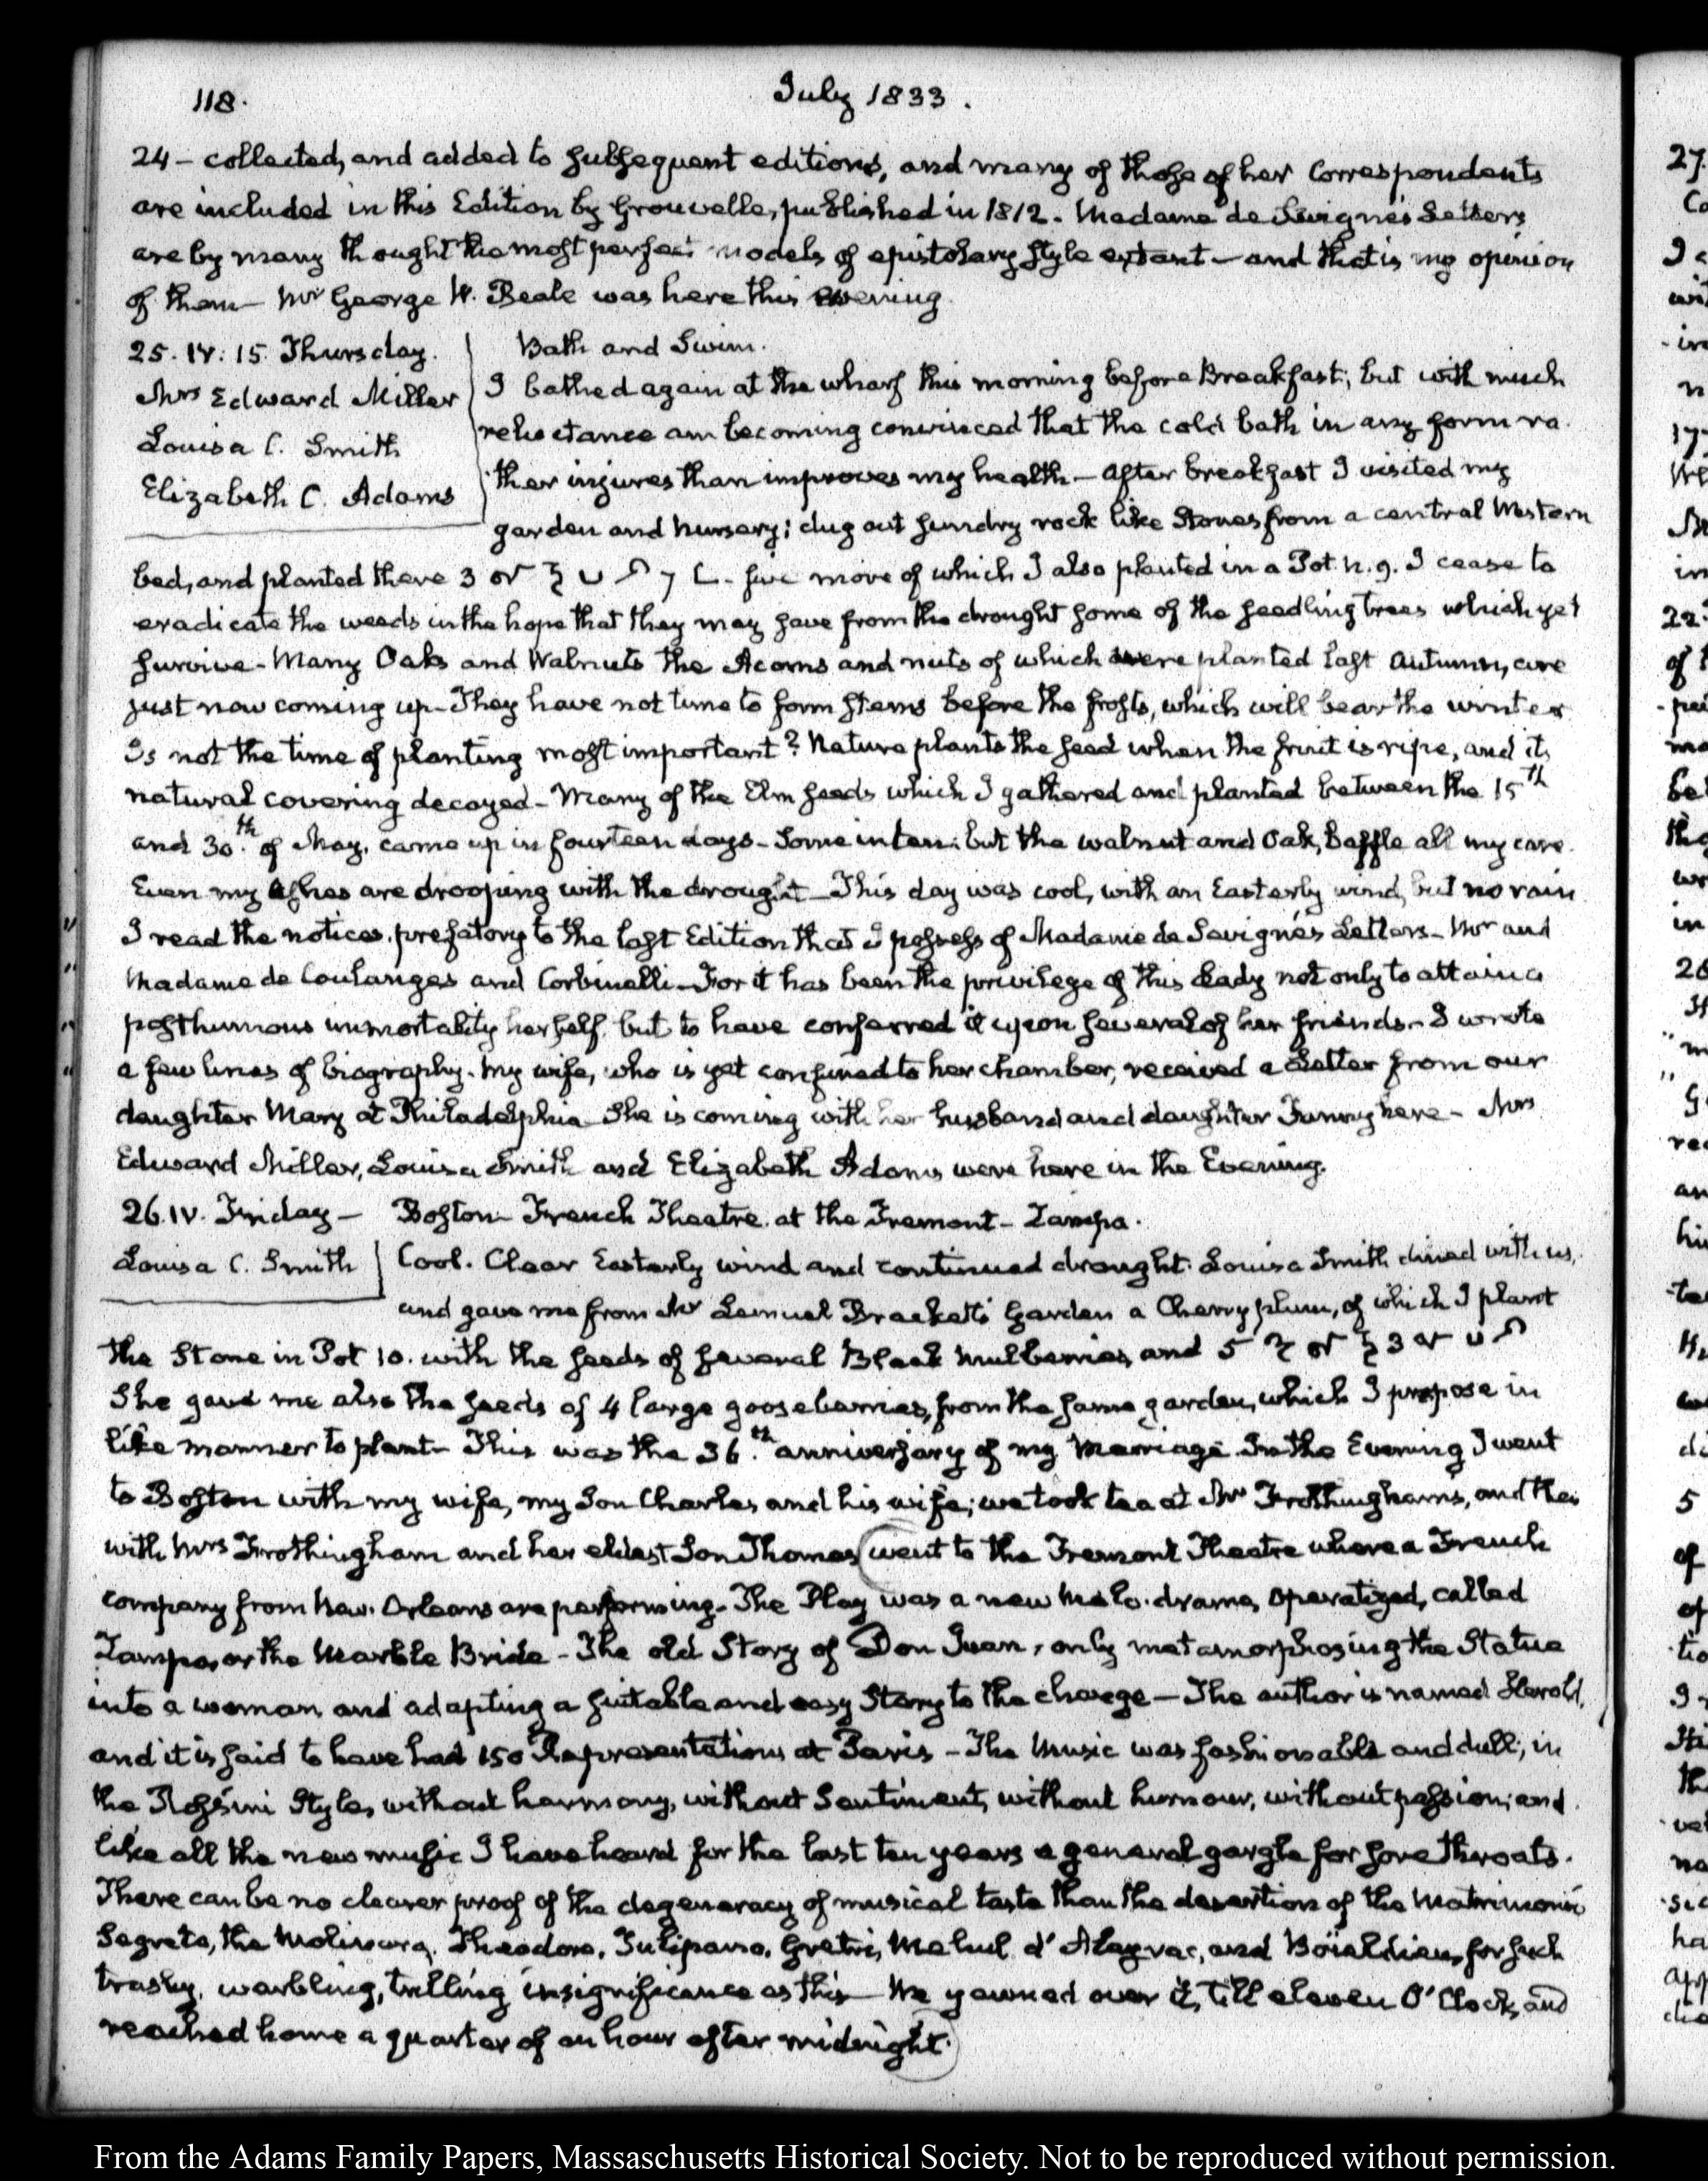 118.
July 1833.
24 - collected, and added to subsequent editions, and many of those of her Correspondents
are included in this Edition by Grouvelle, published in 1812. Madame de Sevigné's Letters
are by many thought the most perfect models of epistolary style extant - and that is my opinion
of them - Mr George W. Beale was here this evening.
25. IV:15. Thursday.
Mrs Edward Miller
Louisa C. Smith
Elizabeth C. Adams
Bath and Swim.
I bathed again at the wharf this morning before Breakfast; but with much
reluctance am becoming convinced that the cold bath in any form ra-
ther injures than improves my health - After breakfast I visited my
garden and nursery; dug out sundry rock like Stones from a central Western
bed, and planted there 3 - five more of which I also planted in a Pot n. 9. I cease to
eradicate the weeds in the hope that they may save from the drought some of the seedling trees which yet
survive - Many Oaks and Walnuts the Acorns and nuts of which were planted last Autumn, are
just now coming up - They have not time to form stems before the frosts, which will bear the winter
Is not the time of planting most important? Nature plants the seed when the fruit is ripe, and its
natural covering decayed - Many of the Elm seeds which I gathered and planted between the 15th
and 30th of May, came up in fourteen days - Some in ten: but the walnut and Oak, baffle all my care.
Even my ashes are drooping with the drought - This day was cool, with an Easterly wind, but no rain
I read the notices prefatory to the last Edition that I possess of Madame de Sevigné's Letters - Mr and
Madame de Coulanges and Corbinelli - For it has been the privilege of this Lady not only to attain a
posthumous immortality herself but to have conferred it upon several of her friends - I wrote
a few lines of biography. My wife, who is yet confined to her chamber, received a Letter from our
daughter Mary at Philadelphia She is coming with her husband and daughter Fanny here - Mrs
Edward Miller, Louisa Smith and Elizabeth Adams were here in the Evening.
26. IV. Friday -
Louisa C. Smith
Boston - French Theatre at the Tremont - Zampa.
Cool. Clear Easterly wind and continued drought. Louisa Smith dined with us,
and gave me from Mr Lemuel Brackett's Garden a Cherry plum, of which I plant
the Stone in Pot 10. with the seeds of several Black Mulberries, and 5
She gave me also the seeds of 4 large gooseberries, from the same garden, which I propose in
like manner to plant - This was the 36th anniversary of my Marriage. In the Evening I went
to Boston with my wife, my Son Charles and his wife; we took tea at Mr Frothingham's, and then
with Mrs Frothingham and her eldest Son Thomas went to the Tremont Theatre where a French
company from New Orleans are performing - The Play was a new Melo-drama, operatized, called
Zampa, or the Marble Bride - The old Story of Don Juan, only metamorphosing the Statue
into a woman, and adapting a suitable and easy Story to the change - The author is named Herold,
and it is said to have had 150 Representations at Paris - The Music was fashionable and dull; in
the Rossini Style, without harmony, without Sentiment, without humour, without passion; and
like all the new music I have heard for the last ten years a general gargle for sore throats.
There can be no clearer proof of the degeneracy of musical taste than the desertion of the Matrimonio
Segreto, the Molinara, Theodore, Tulipano, Gretri, Mehul d'Alayrac, and Boieldieu, for such
trashy, warbling, trilling insignificance as this - We yawned over it, till eleven O'Clock, and
reached home a quarter of an hour after midnight.
From the Adams Family Papers, Massachusetts Historical Society. Not to be reproduced without permission.